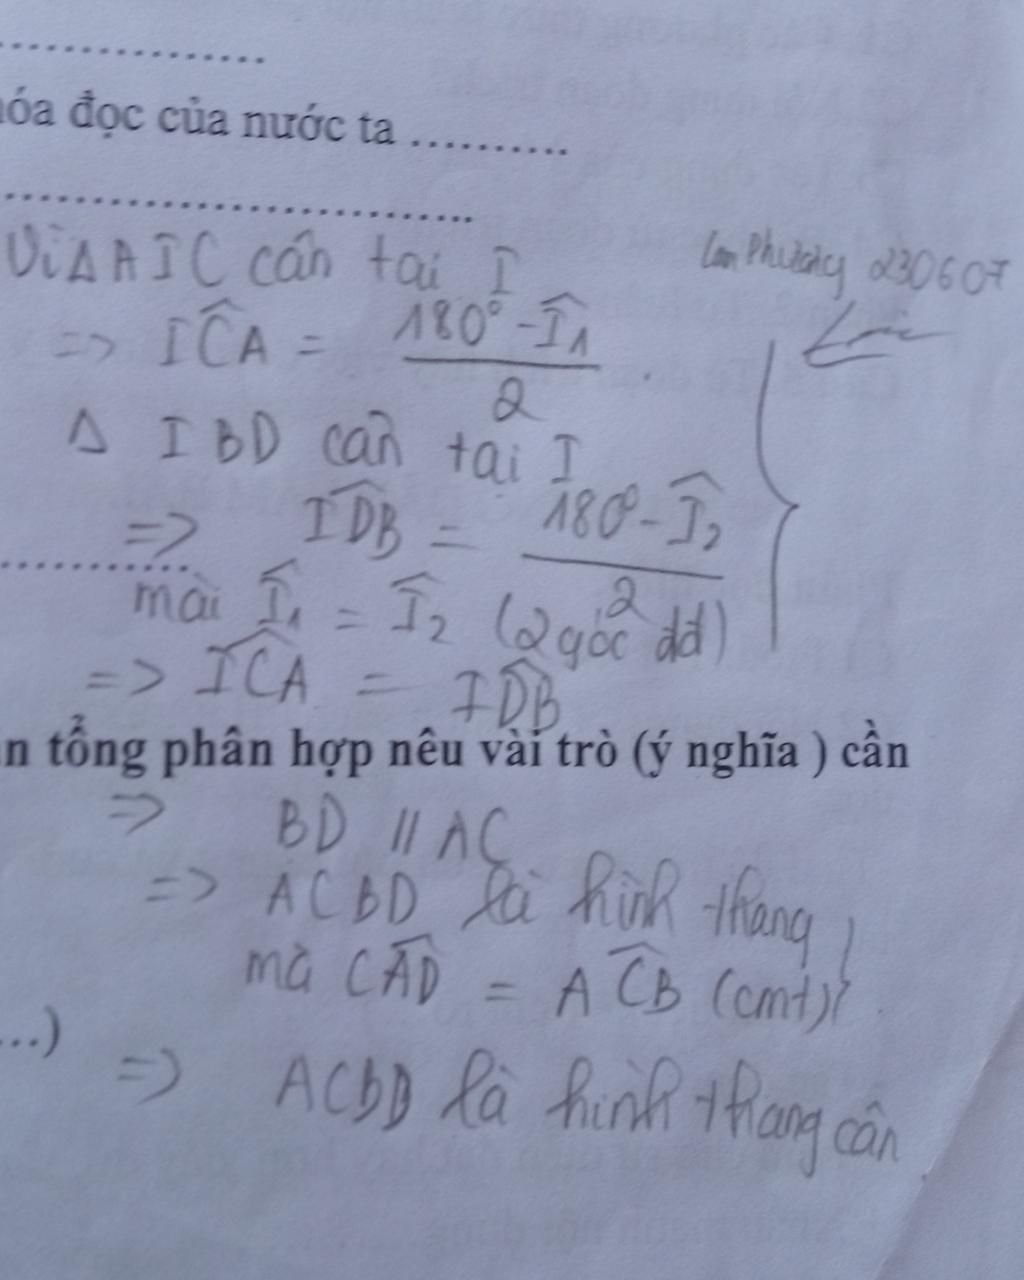 ...............
hóa đọc của nước ta ..........
..........................
Vì ΔAIC cân tại I
Lan Phương 230607
=> ICA = 180° - I1 / 2
Δ IBD cân tại I
=> IDB = 180° - I2 / 2
mài I1 = I2 (2 góc đđ)
=> ICA = IDB
n tổng phân hợp nêu vài trò (ý nghĩa ) cần
=> BD // AC
=> ACBD là hình thang
mà CAD = ACB (cmt)
...)
=> ACBD là hình thang cân